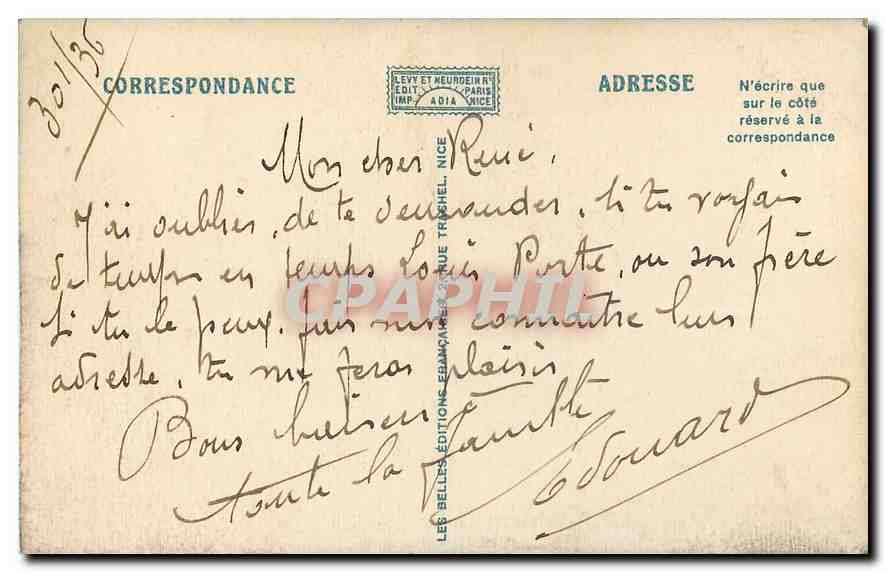 30 1/36
CORRESPONDANCE
LEVY ET NEURDEIN Rs
EDIT PARIS
IMP ADIA NICE
ADRESSE
N'écrire que
sur le côté
réservé à la
correspondance
Mon cher René,
J'ai oublier, de te demander, si tu voyais
de temps en temps Louis Porte, ou son frère
si tu le peux, fais moi connaître leur
adresse, tu me feras plaisir
Bons baisers à
toute la famille
Edouard
LES BELLES ÉDITIONS FRANÇAISES, RUE TRACHEL, NICE
CPAPHIL